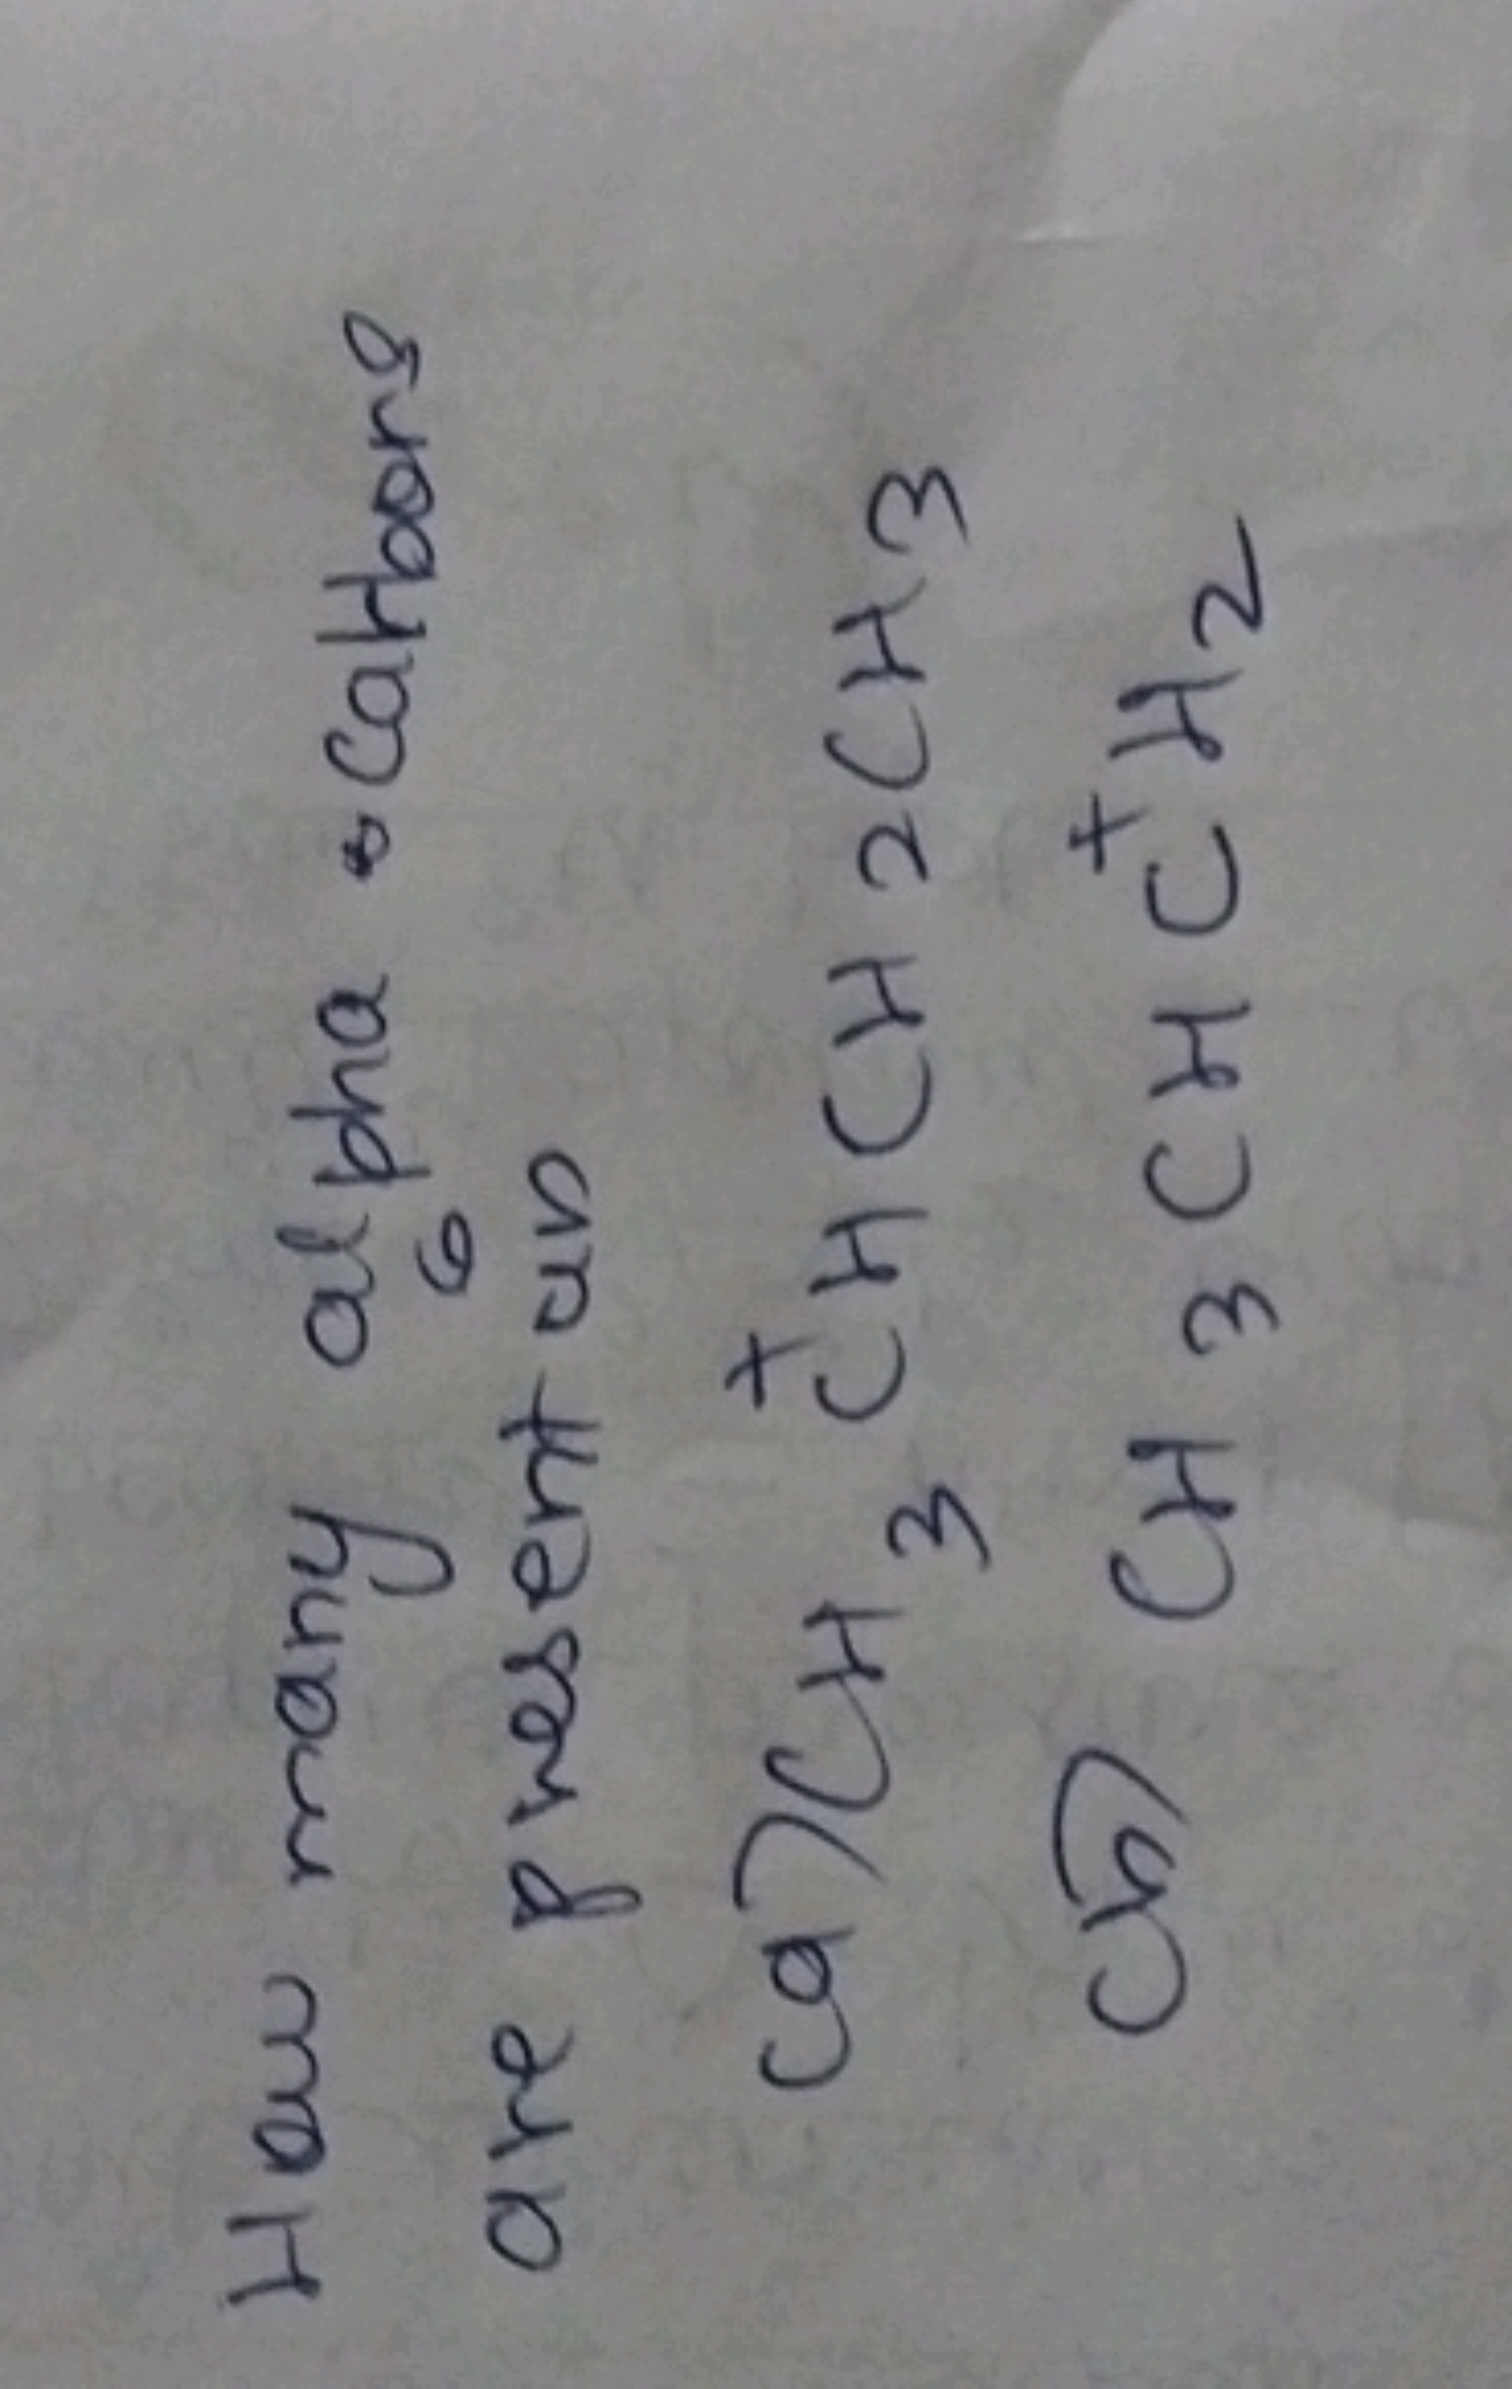 How many alpha carbons
6
are present in
(a) CH3 C+HCH2CH3
(b) CH3CHC+H2